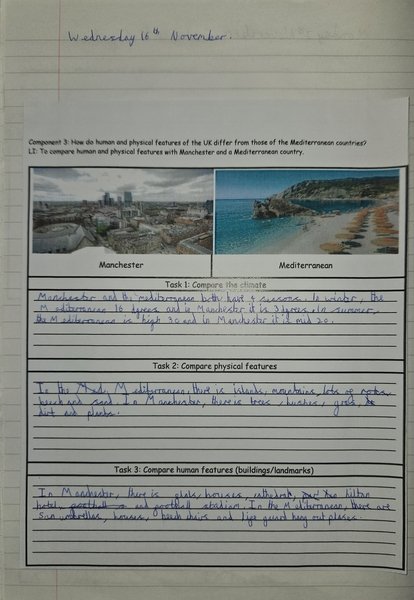 Wednesday 16th November.
Component 3: How do human and physical features of the UK differ from those of the Mediterranean countries?
LI: To compare human and physical features with Manchester and a Mediterranean country.
Manchester
Mediterranean
Task 1: Compare the climate
Manchester and the mediterranean both have 4 seasons. In winter, the
Mediterranean 16 dgrees and in Manchester it is 3 dgrees. In summer,
the Mediterranean is high 30 and in Manchester it is mid 20.
Task 2: Compare physical features
In the Mediterranean, there is islands, mountains, lots of
beech and sand. In Manchester, there is trees, bushes, grass,
dirt and plants.
Task 3: Compare human features (buildings/landmarks)
In Manchester, there is flats, houses, cathedral, hilton
hotel, and football stadium. In the Mediterranean, there are
sun umbrellas, houses, beech chairs and life guard hang out places.